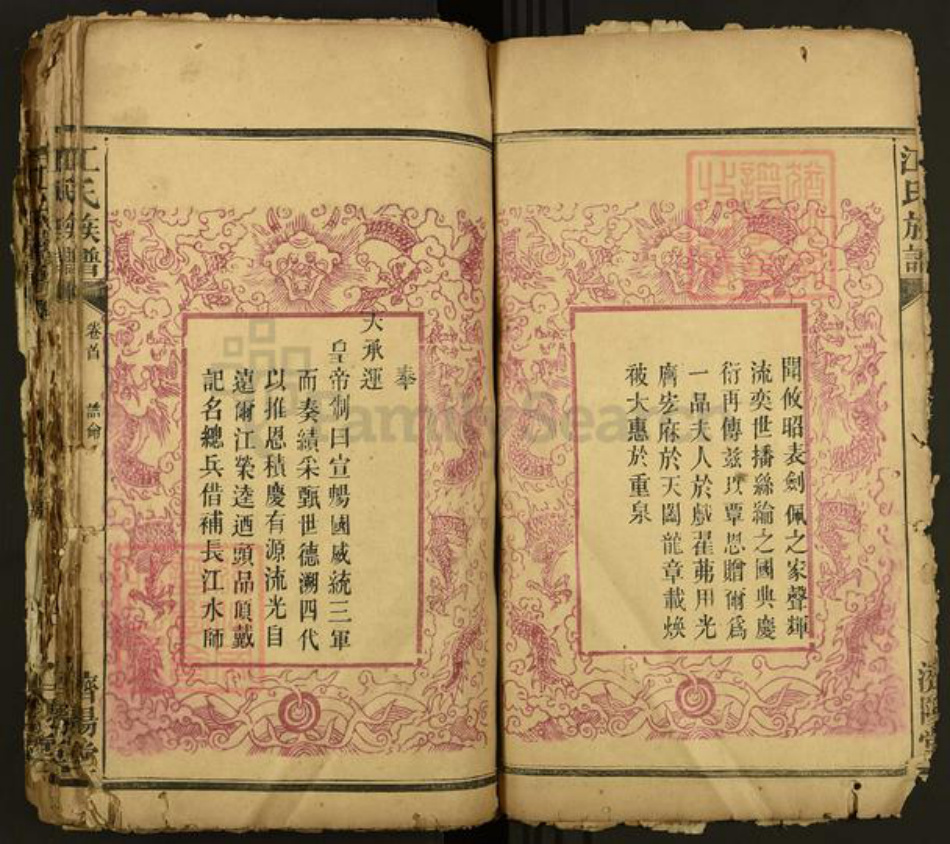 江氏族譜
聞攸昭表劍佩之家聲輝
流奕世播絲綸之國典慶
衍再傳兹以覃恩贈爾爲
一品夫人於戲翟茀用光
膺宏庥於天闔龍章載煥
被大惠於重泉
濟陽堂
奉
天承運
皇帝制曰宣暢國威統三軍
而奏績采甄世德溯四代
以推恩積慶有源流光自
遠爾江榮逵迺頭品頂戴
記名總兵借補長江水師
江氏族譜
卷首
誥命
濟陽堂
FamilySearch